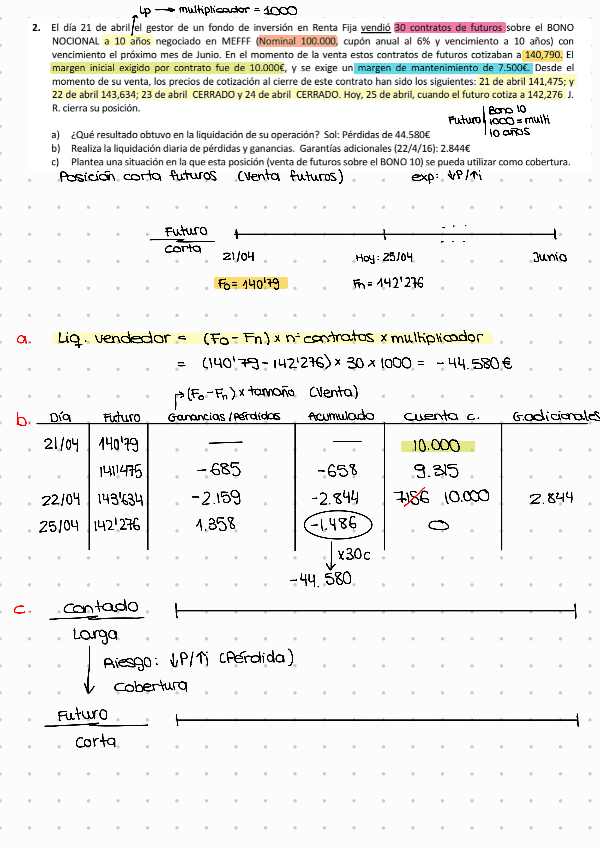 ↳p → multiplicador = 1000
2. El día 21 de abril, el gestor de un fondo de inversión en Renta Fija vendió 30 contratos de futuros sobre el BONO
NOCIONAL a 10 años negociado en MEFFF (Nominal 100.000, cupón anual al 6% y vencimiento a 10 años) con
vencimiento el próximo mes de Junio. En el momento de la venta estos contratos de futuros cotizaban a 140,790. El
margen inicial exigido por contrato fue de 10.000€, y se exige un margen de mantenimiento de 7.500€. Desde el
momento de su venta, los precios de cotización al cierre de este contrato han sido los siguientes: 21 de abril 141,475; y
22 de abril 143,634; 23 de abril CERRADO y 24 de abril CERRADO. Hoy, 25 de abril, cuando el futuro cotiza a 142,276 J.
R. cierra su posición.
Futuro | Bono 10
1000 = multi
10 años
a) ¿Qué resultado obtuvo en la liquidación de su operación? Sol: Pérdidas de 44.580€
b) Realiza la liquidación diaria de pérdidas y ganancias. Garantías adicionales (22/4/16): 2.844€
c) Plantea una situación en la que esta posición (venta de futuros sobre el BONO 10) se pueda utilizar como cobertura.
Posición corta futuros (Venta futuros) exp: ↓P/↑i
Futuro
corta
21/04 Hoy: 25/04 Junio
F₀ = 140'79 Fn = 142'276
a. Liq. vendedor = (F₀ - Fn) × nº contratos × multiplicador
= (140'79 - 142'276) × 30 × 1000 = -44.580€
→ (F₀ - Fn) × tamaño (Venta)
b. Día Futuro Ganancias/Pérdidas Acumulado Cuenta c. G.adicionales
21/04 140'79 — — 10.000
141'475 -685 -658 9.315
22/04 143'634 -2.159 -2.844 7.156 10.000 2.844
25/04 142'276 1.358 -1.486 0
↓ x30c
-44.580
c. Contado
Larga
Riesgo: ↓P/↑i (Pérdida)
Cobertura
Futuro
corta